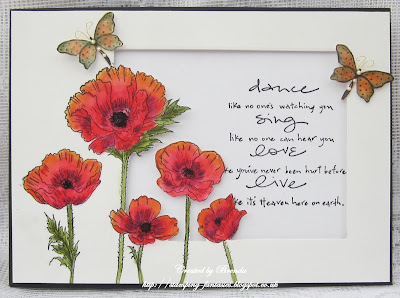 dance
like no one's watching you
sing
like no one can hear you
love
like you've never been hurt before
live
like it's Heaven here on earth.
Created by Brenda
http://stamping-fantasies.blogspot.co.uk